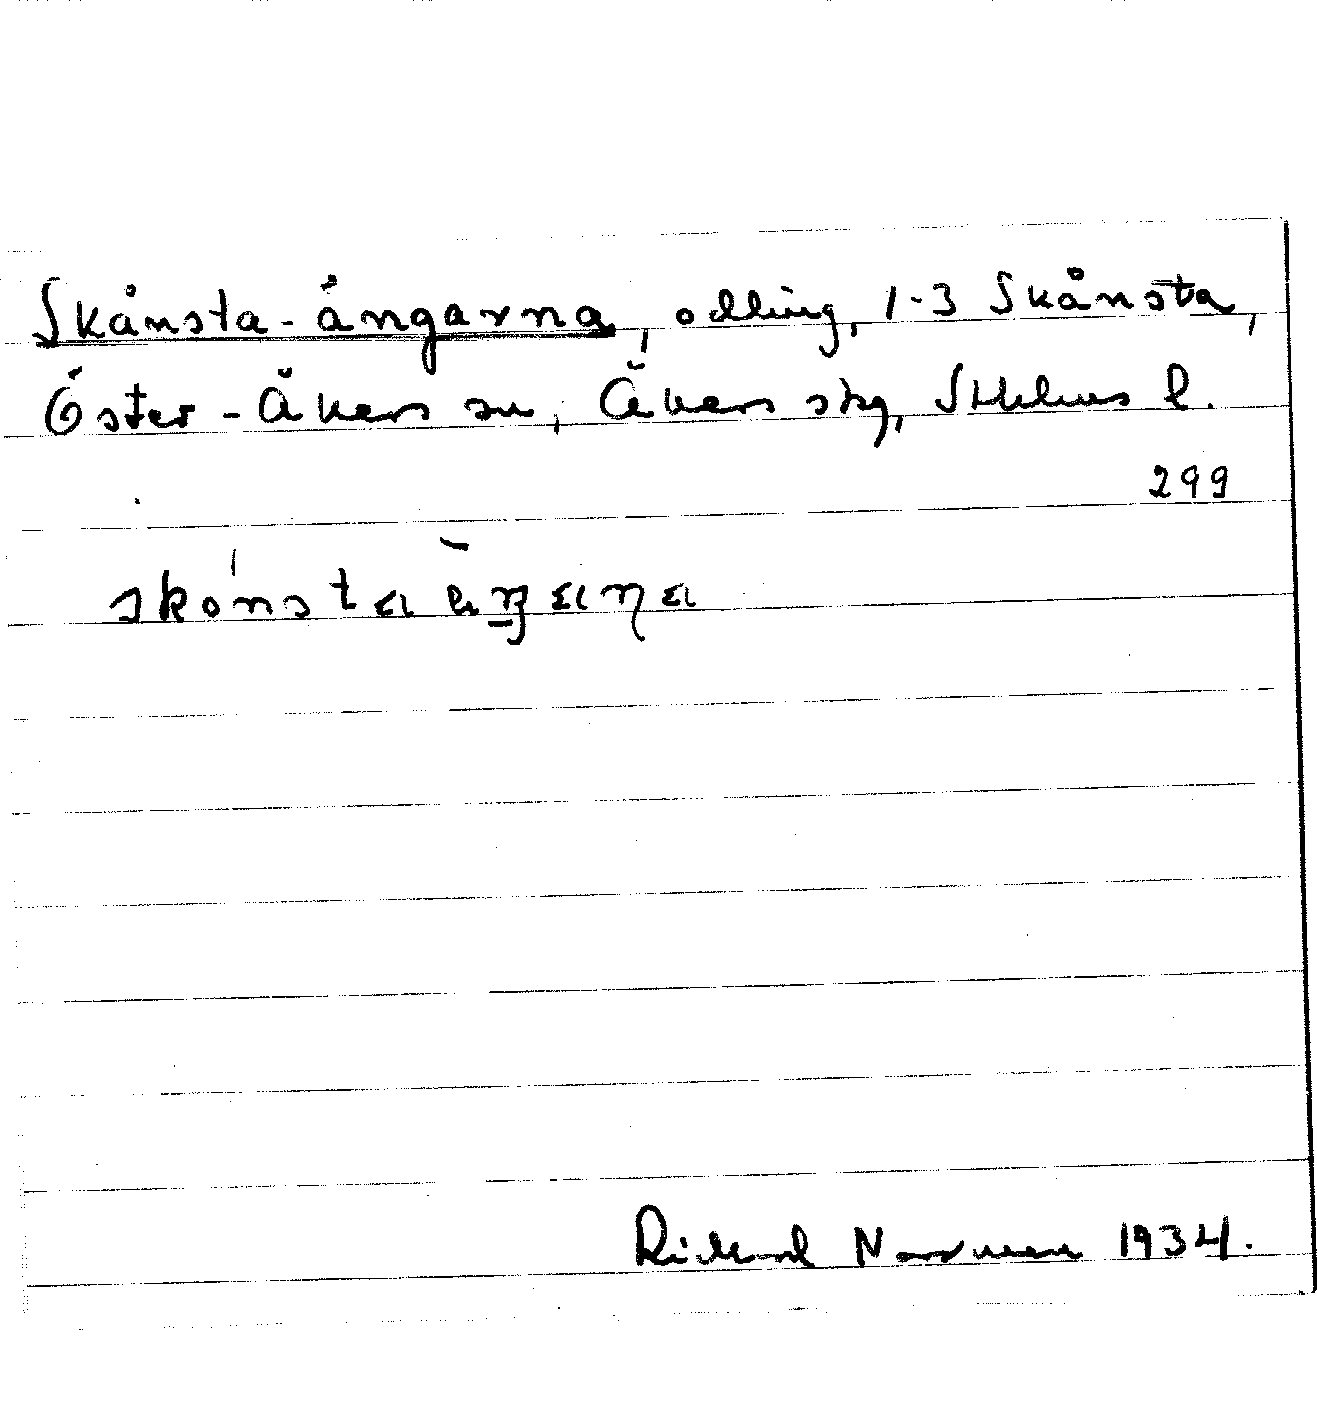 Skånsta-ängarna, odling, 1-3 Skånsta,
Öster-Åkers sn, Åkers skg, Sthlms l.
299
Rickard Norrman 1934.